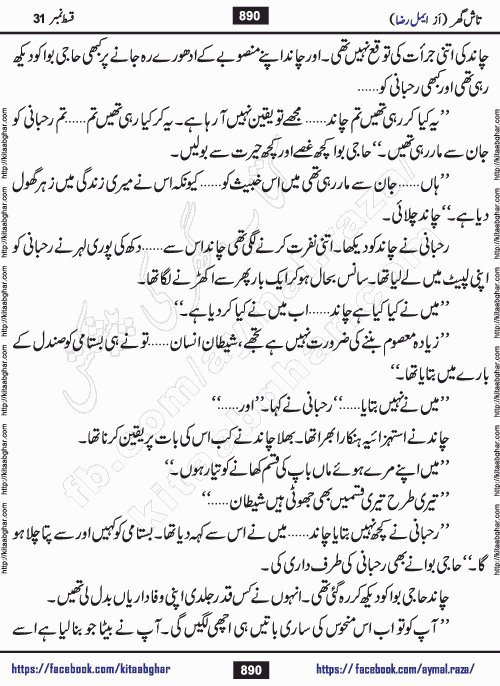 تاش گھر (از ایمل رضا)
890
قسط نمبر 31
چاند کی اتنی جرأت کی توقع نہیں تھی۔ اور چاند اپنے منصوبے کے ادھورے رہ جانے پر کبھی حاجی بوا کو دیکھ
رہی تھی اور کبھی رحبانی کو......
’’یہ کیا کر رہی تھیں تم چاند...... مجھے تو یقین نہیں آ رہا ہے۔ یہ کر کیا رہی تھیں تم...... تم رحبانی کو
جان سے مار رہی تھیں۔‘‘ حاجی بوا کچھ غصے اور کچھ حیرت سے بولیں۔
’’ہاں...... جان سے مار رہی تھی میں اس خبیث کو...... کیونکہ اس نے میری زندگی میں زہر گھول
دیا ہے۔‘‘ چاند چلائی۔
رحبانی نے چاند کو دیکھا۔ اتنی نفرت کرنے لگی تھی چاند اس سے...... دکھ کی پوری لہر نے رحبانی کو
اپنی لپیٹ میں لے لیا تھا۔ سانس بحال ہو کر ایک بار پھر سے اکھڑنے لگا تھا۔
’’میں نے کیا کیا ہے چاند...... اب میں نے کیا کر دیا ہے۔‘‘
’’زیادہ معصوم بننے کی ضرورت نہیں ہے تجھے، شیطان انسان...... تو نے ہی بستامی کو صندل کے
بارے میں بتایا تھا۔‘‘
’’میں نے نہیں بتایا......‘‘ رحبانی نے کہا۔ ’’اور......‘‘
چاند نے استہزائیہ ہنکارا بھرا تھا۔ بھلا چاند نے کب اس کی بات پر یقین کرنا تھا۔
’’میں اپنے مرے ہوئے ماں باپ کی قسم کھانے کو تیار ہوں۔‘‘
’’تیری طرح تیری قسمیں بھی جھوٹی ہیں شیطان......‘‘
’’رحبانی نے کچھ نہیں بتایا چاند...... میں نے اس سے کہہ دیا تھا۔ بستامی کو کہیں اور سے پتا چلا ہو
گا۔‘‘ حاجی بوا نے بھی رحبانی کی طرف داری کی۔
چاند حاجی بوا کو دیکھ کر رہ گئی تھی۔ انہوں نے کس قدر جلدی اپنی وفاداریاں بدل لی تھیں۔
’’آپ کو تو اب اس منحوس کی ساری باتیں ہی اچھی لگیں گی۔ آپ نے بیٹا جو بنا لیا ہے اسے
https://facebook.com/kitaabghar
890
https:// facebook.com/aymal.raza/
http://kitaabghar.com
http://kitaabghar.com
http://kitaabghar.com
http://kitaabghar.com
http://kitaabghar.com
http://kitaabghar.com
http://kitaabghar.com
http://kitaabghar.com
http://kitaabghar.com
http://kitaabghar.com
fb.com/aymal.raza/
kitaabghar.com